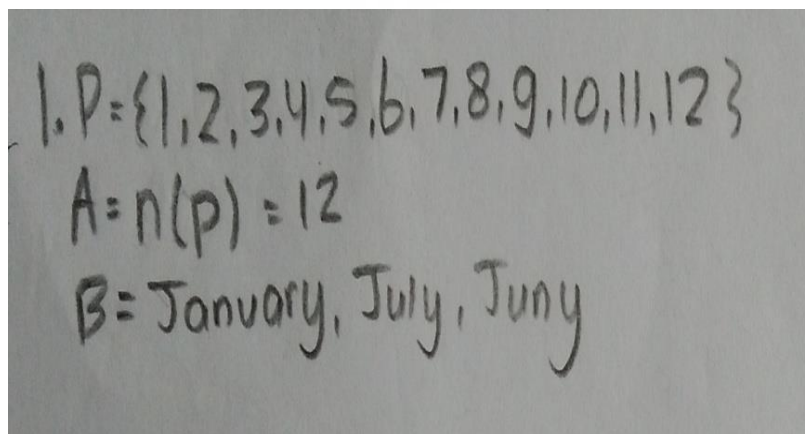 1. P={1,2,3,4,5,6,7,8,9,10,11,12}
A=n(p)=12
B=January, July, Juny